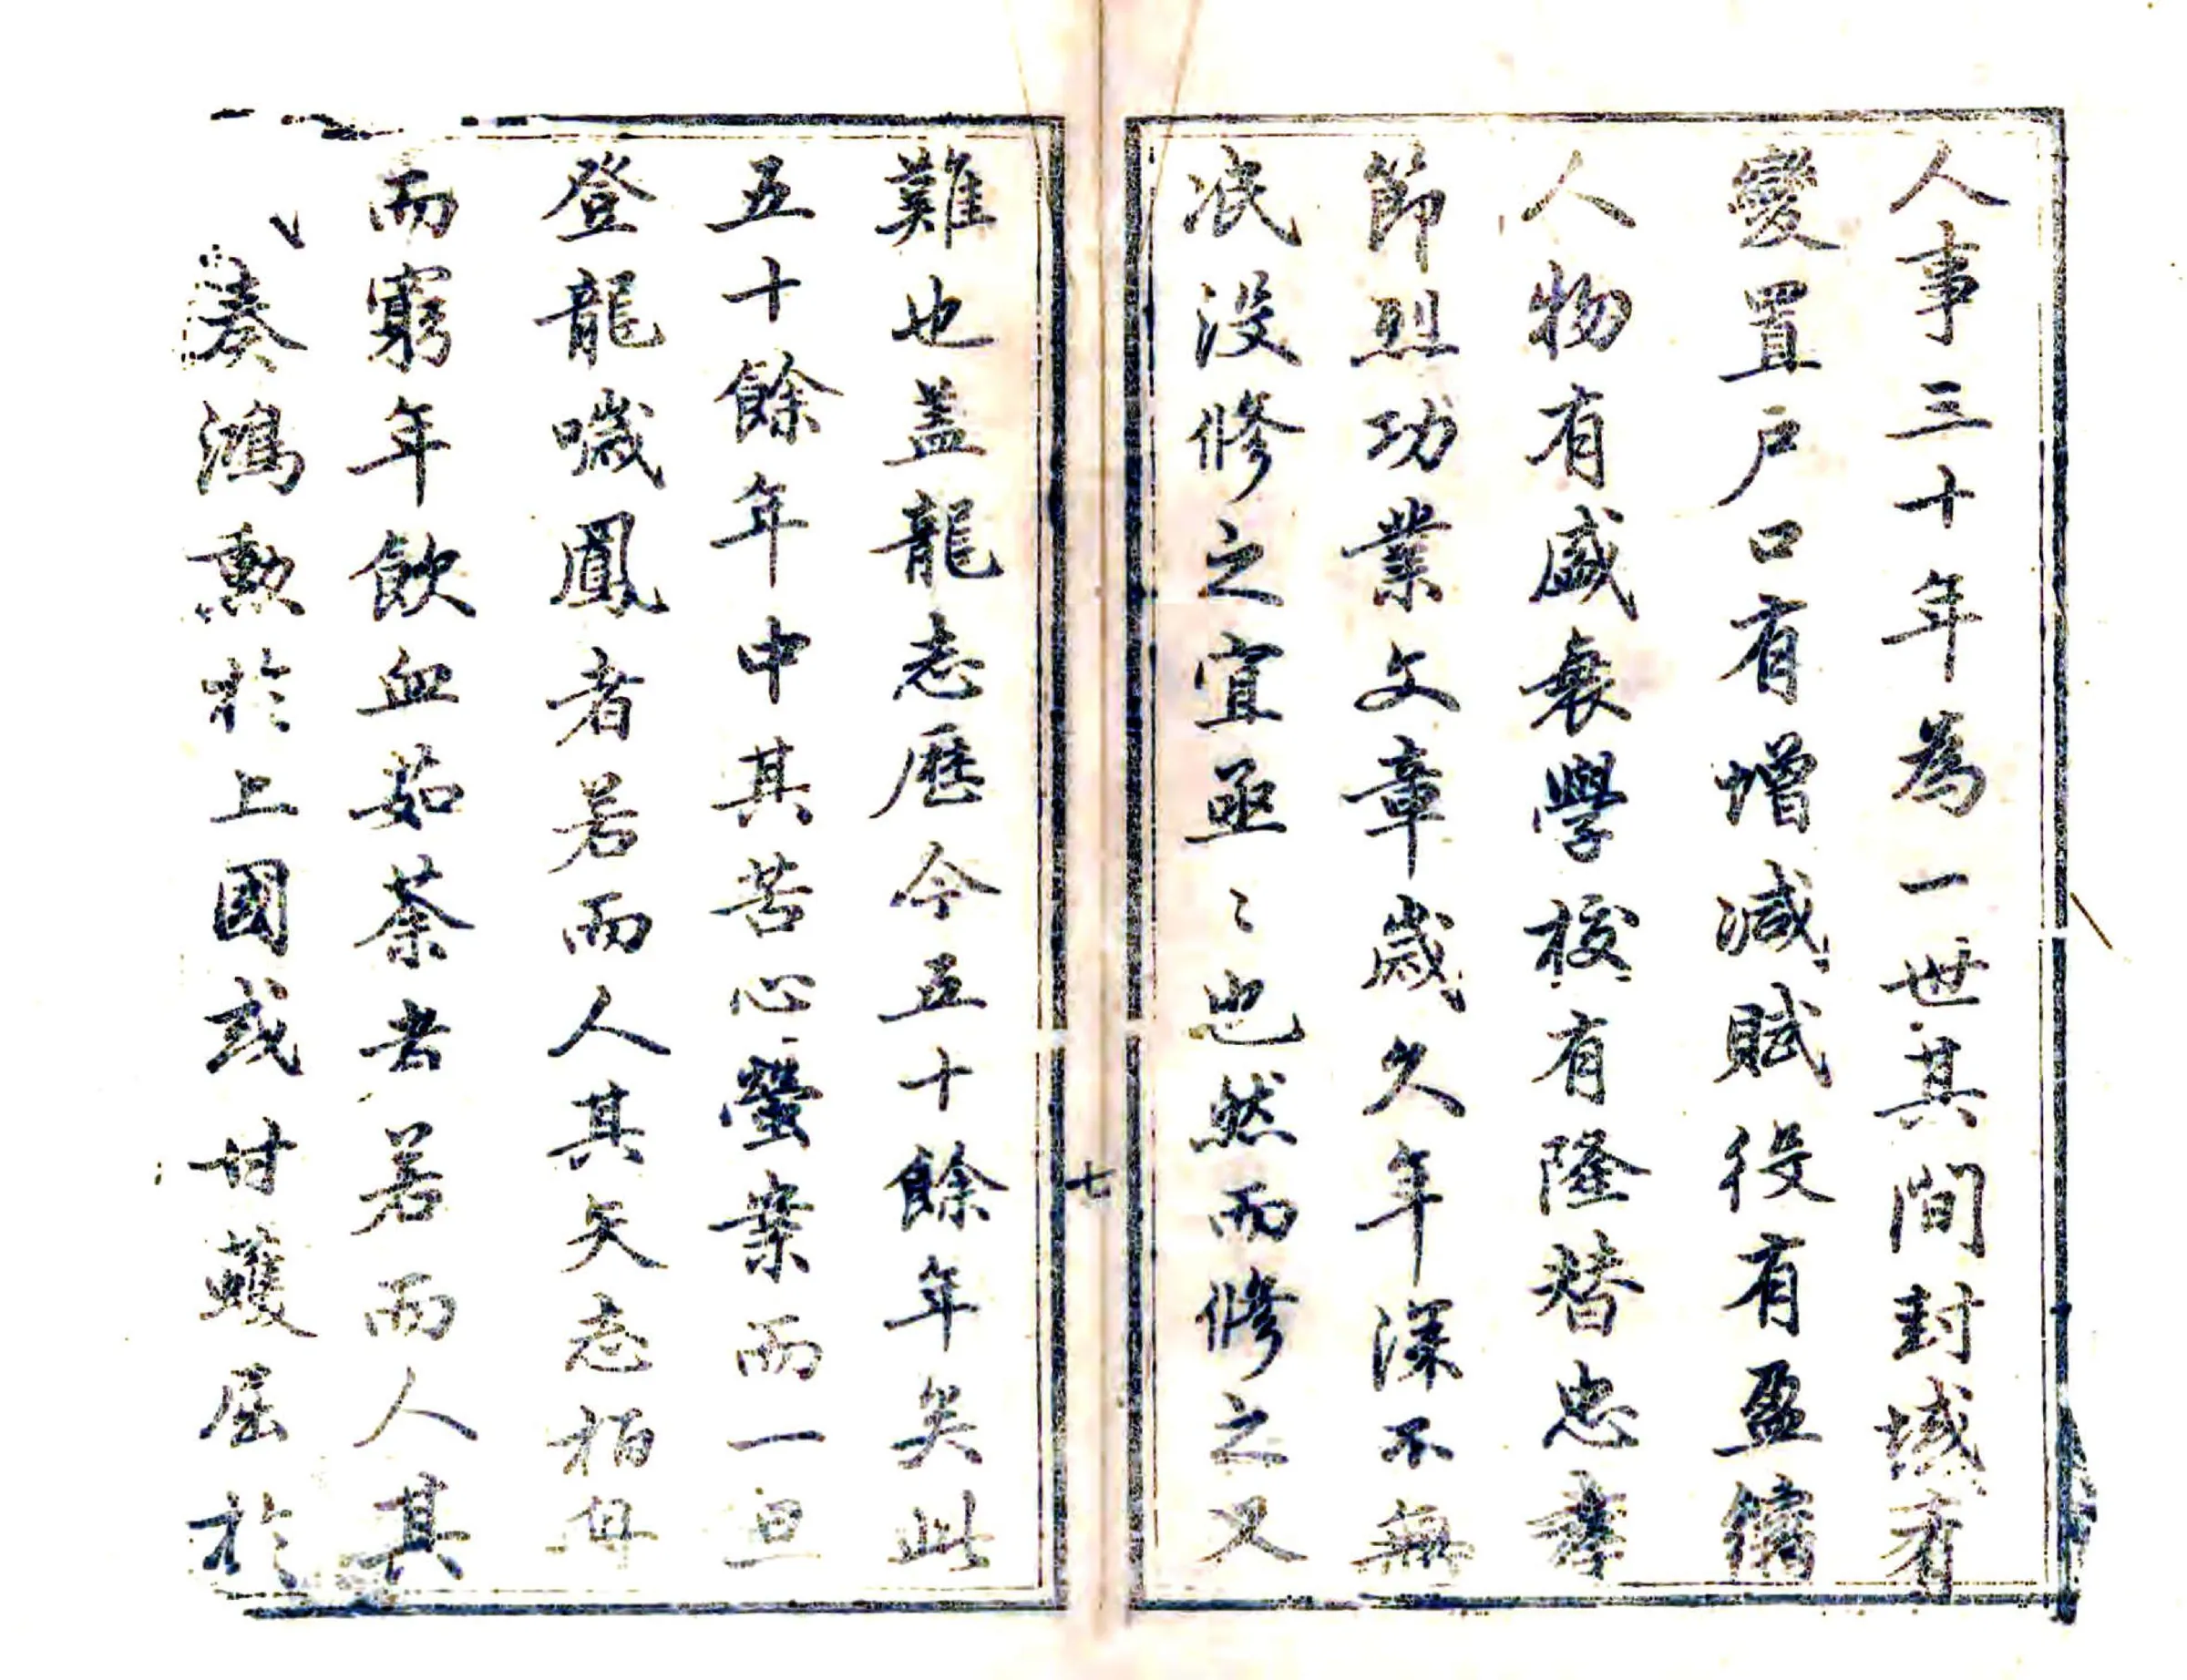 人事三十年為一世其間封域有
變置戶口有增減賦役有盈縮
人物有盛衰學校有隆替忠孝
節烈功業文章歲久年深不無
泯没修之宜亟〻也然而修之又
七
難也盖龍志歷今五十餘年矣此
五十餘年中其苦心螢案而一旦
登龍噦鳳者若而人其矢志栢舟
而窮年飲血茹荼者若而人其
奏鴻勳於上國或甘蠖屈於